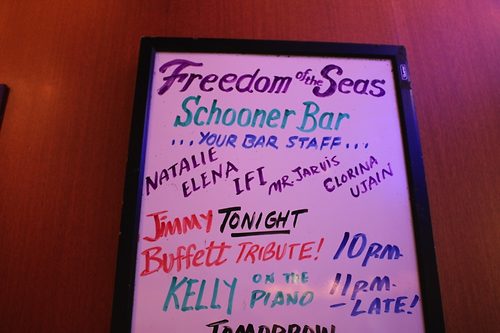 Freedom of the Seas
Schooner Bar
...YOUR BAR STAFF...
NATALIE ELENA IFI MR. JARVIS CLORINA UJAIN
Jimmy TONIGHT
Buffett TRIBUTE! 10pm.
KELLY ON THE PIANO 11pm - LATE!
TOMORROW